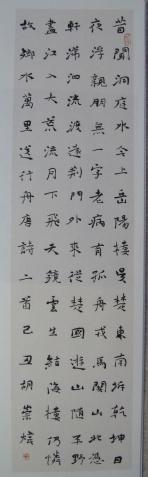 昔聞洞庭水今上岳陽樓吳楚東南坼乾坤日
夜浮親朋無一字老病有孤舟戎馬關山北憑
軒涕泗流渡遠荊門外來從楚國遊山隨平野
盡江入大荒流月下飛天鏡雲生結海樓仍憐
故鄉水萬里送行舟唐詩二首己丑胡崇煒